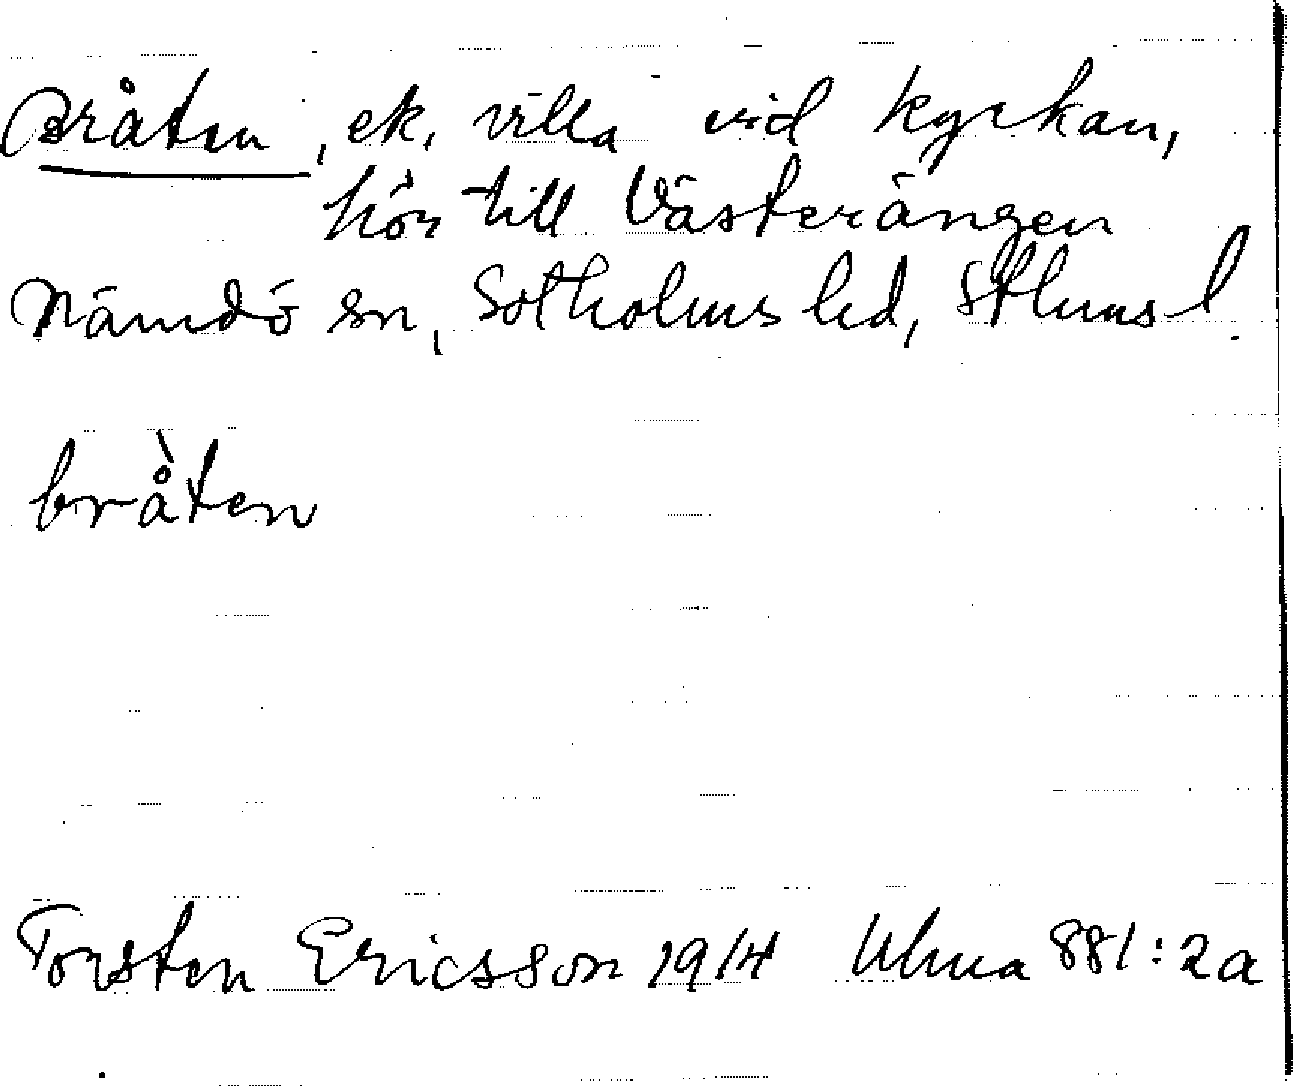 Bråten, ek. villa vid kyrkan,
hör till Västerängen
Nämdö sn, Sotholms hd, Sthms l.
bråten
Torsten Ericsson 1914 Ulma 881:2a